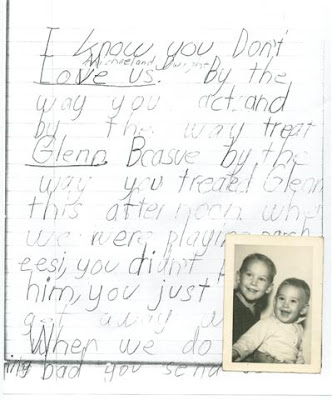 I know you Don't
Micheel and Dwight
Love us. By the
way you act, and
by the way treat
Glenn Bcasue by the
way you treated Glenn
this afternoon when
we were playing parch
eesi, you didn't
him, you just
get away
When we do
bad you send